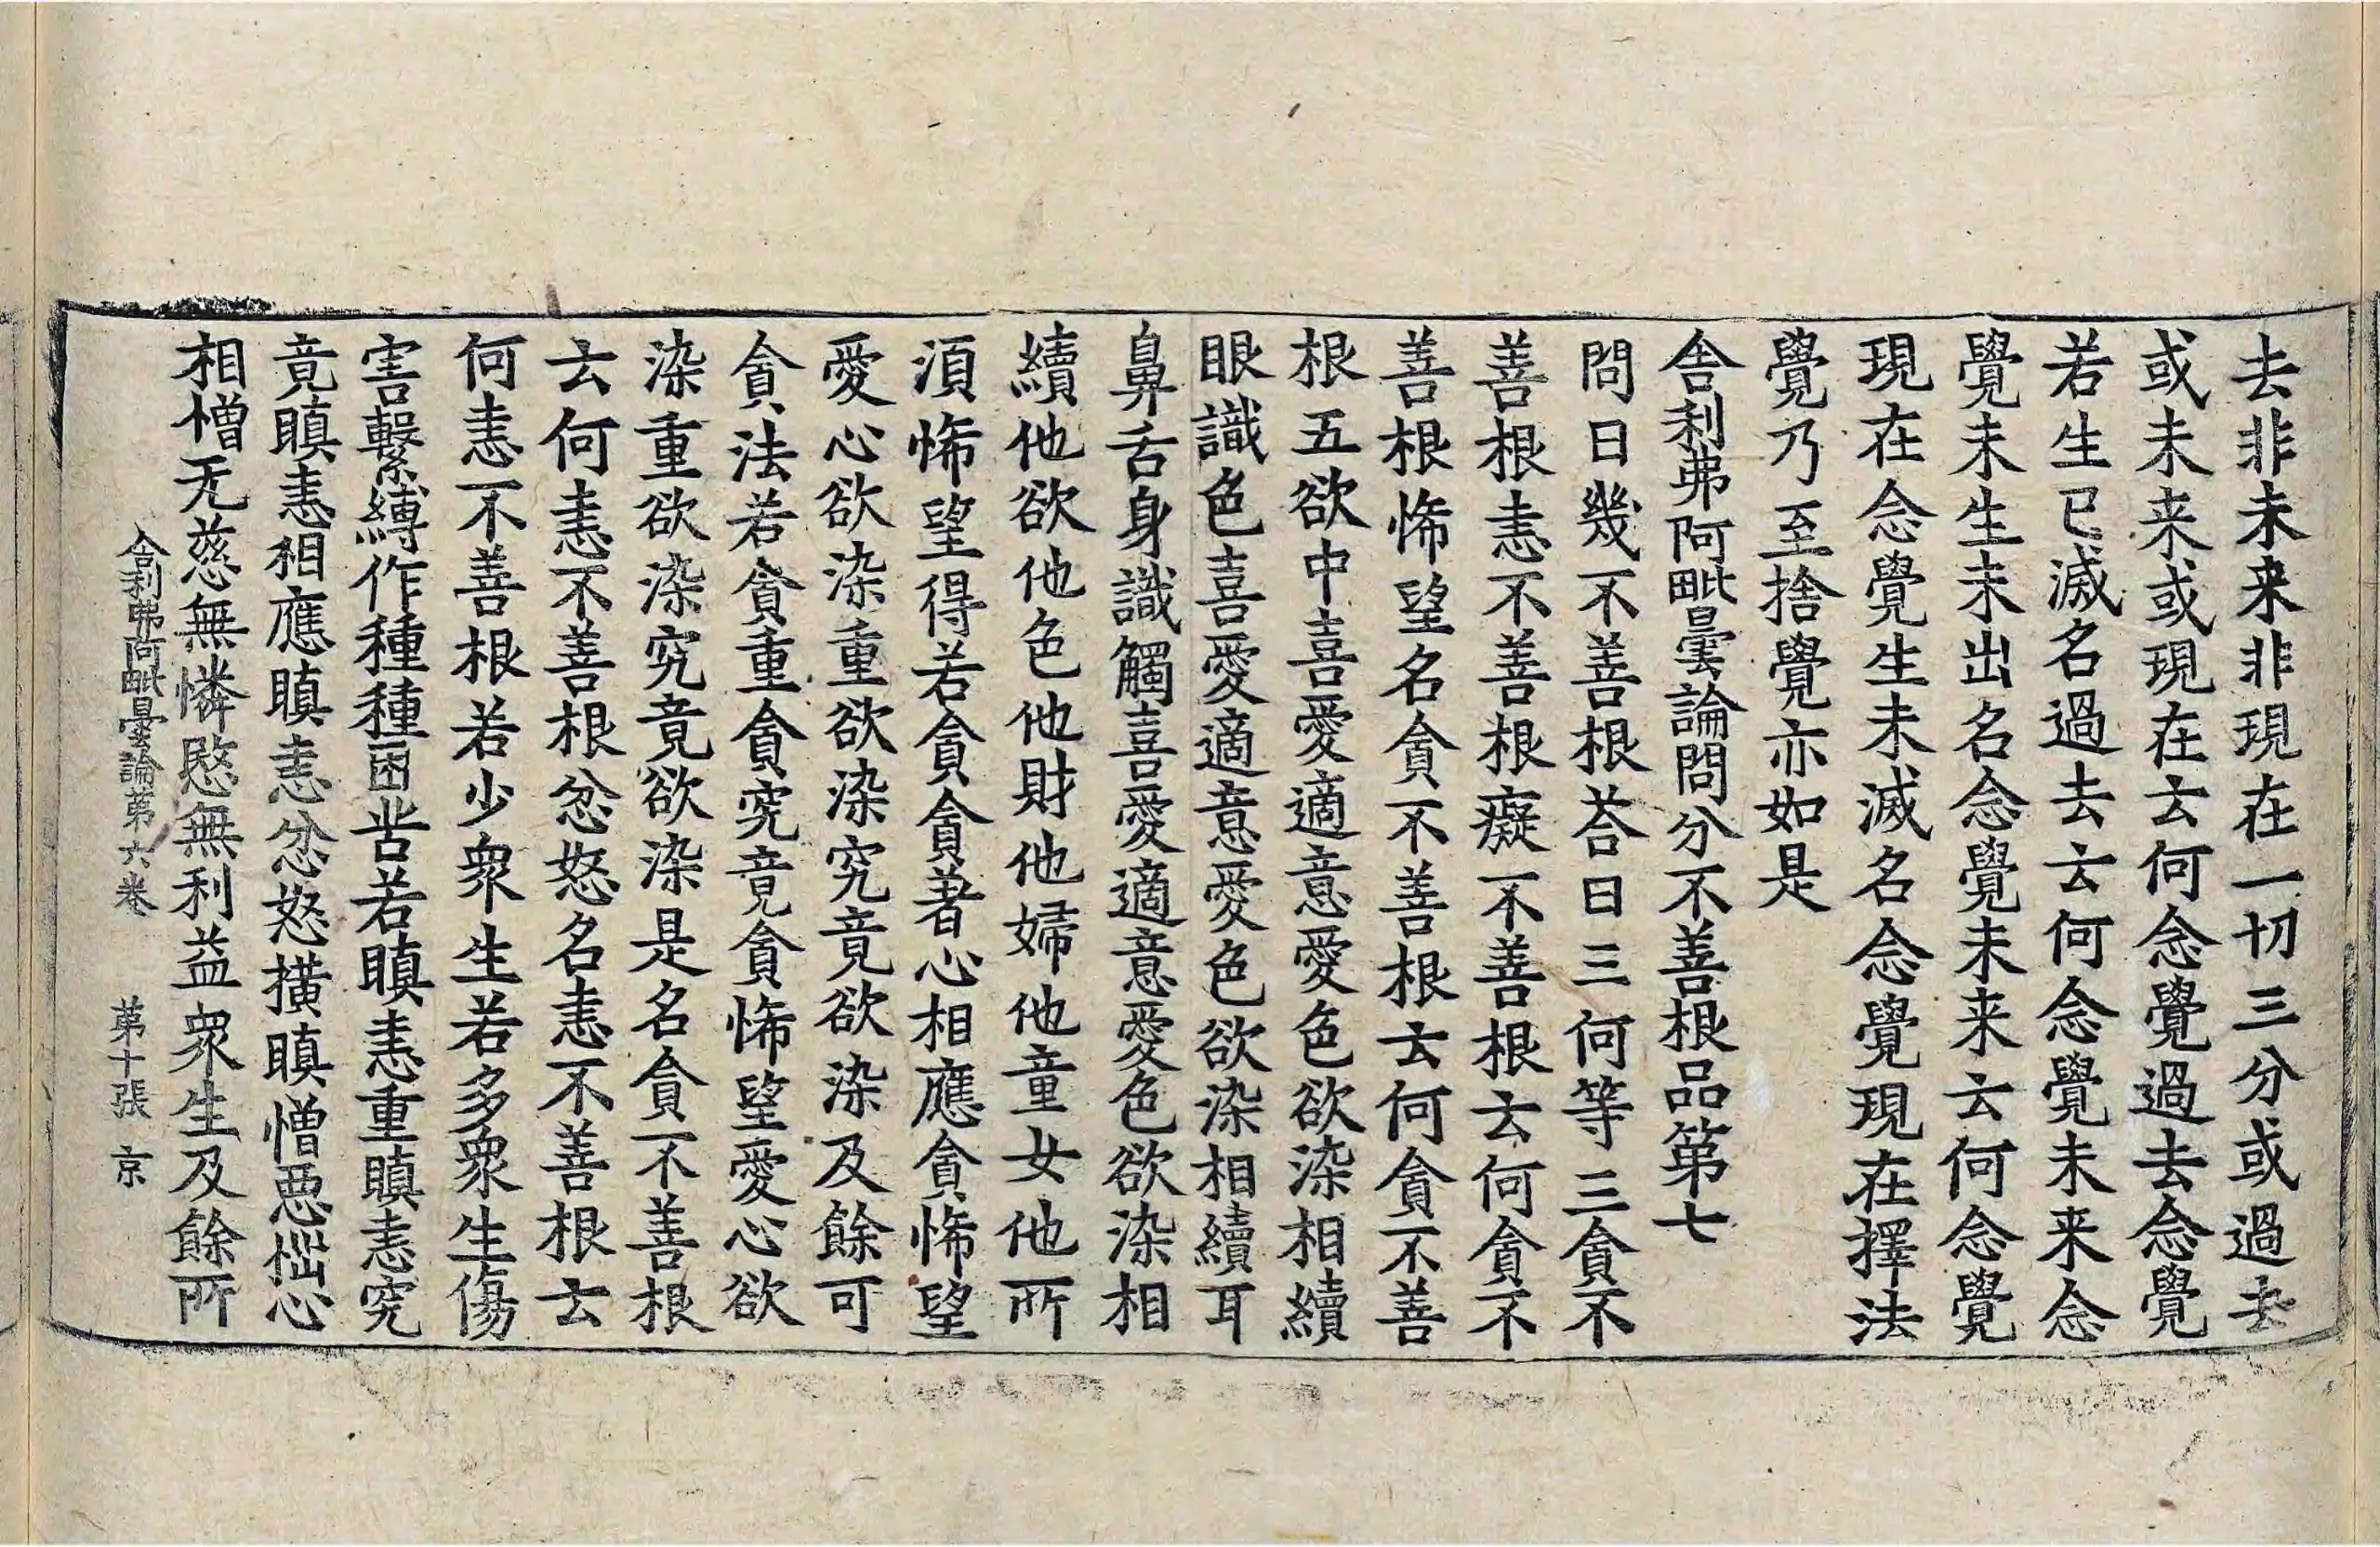 去非未来非現在一切三分或過去
或未来或現在去何念覺過去念覺
若生已滅名過去去何念覺未来念
覺未生未出名念覺未来云何念覺
現在念覺生未滅名念覺現在擇法
覺乃至捨覺亦如是
舎利弗阿毗曇論問分不善根品第七
問曰幾不善根荅曰三何等三貪不
善根恚不善根癡不善根云何貪不
善根悕望名貪不善根云何貪不善
根五欲中喜愛適意愛色欲染相續
眼識色喜愛適意愛色欲染相續耳
鼻舌身識觸喜愛適意愛色欲染相
續他欲他色他財他婦他童女他所
須悕望得若貪貪著心相應貪悕望
愛心欲染重欲染究竟欲染及餘可
貪法若貪重貪究竟貪悕望愛心欲
染重欲染究竟欲染是名貪不善根
云何恚不善根忿怒名恚不善根云
何恚不善根若少衆生若多衆生傷
害繫縛作種種困苦若瞋恚重瞋恚究
竟瞋恚相應瞋恚忿怒横瞋憎惡㤕心
相憎无慈無憐愍無利益衆生及餘所
舍利弗阿毗曇論第六卷 第十張 京